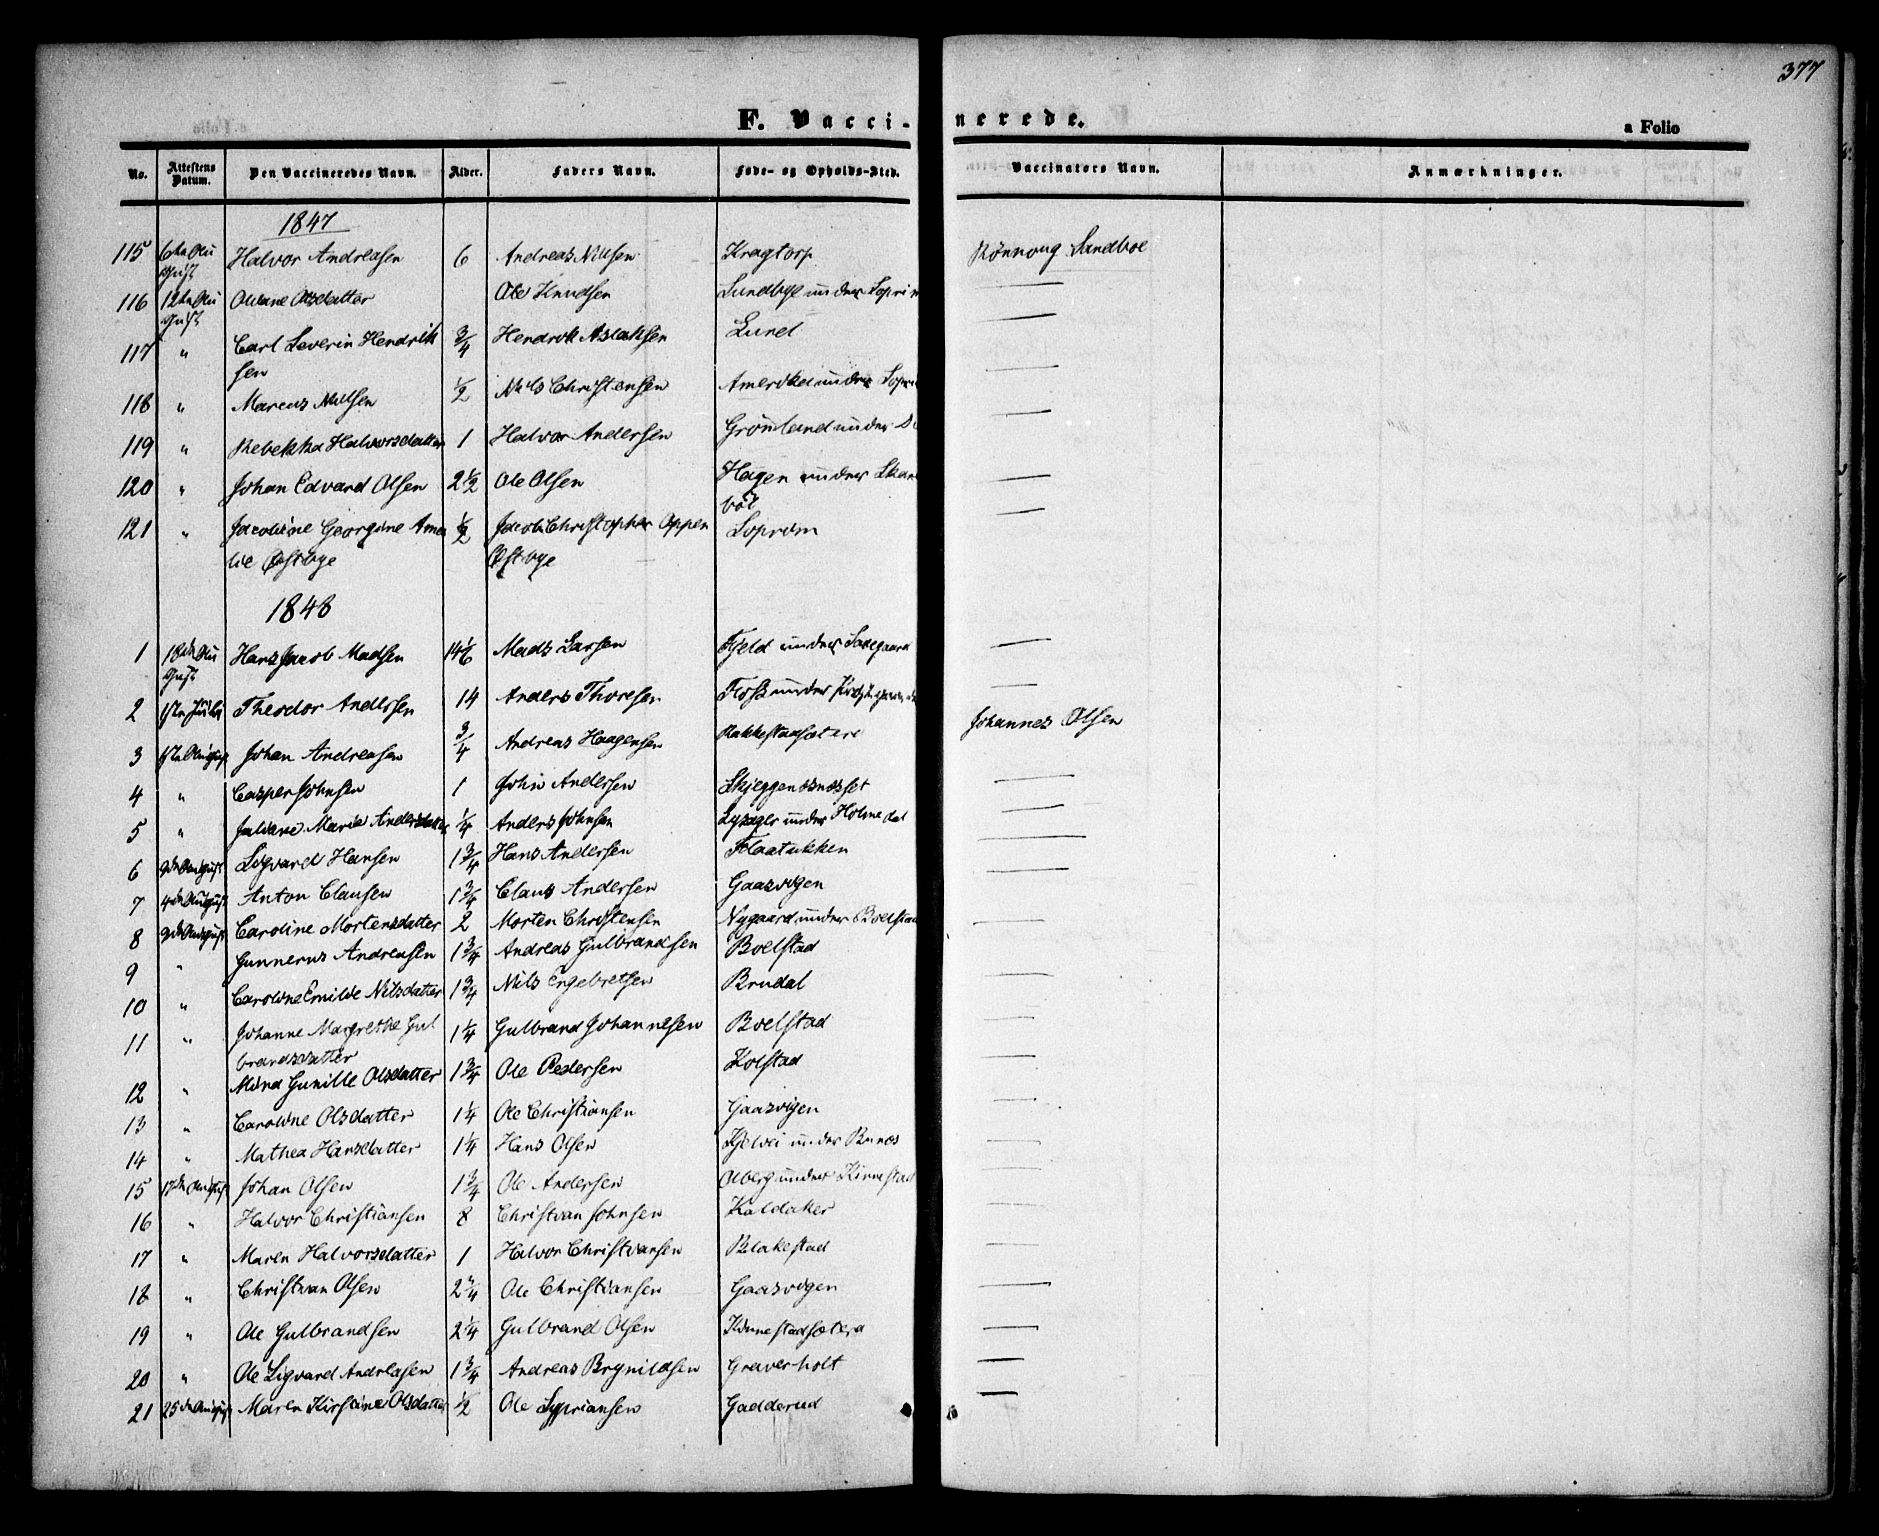 377
F. Vaccinerede.
a Folio
No. Attestens Datum. Den Vaccineredes Navn. Alder. Faders Navn. Føde- og Opholds-Sted. Vaccinators Navn. Anmærkninger.
1847
115 6te Au gust Halvor Andreasen 6 Andreas Nilsen Kragtorp Rønnoug Sandboe
116 12te Au gust Oliane Olsdatter Ole Knudsen Lundbye under Soprim —
117 " Carl Severin Hendrik sen 3/4 Hendrik Aslaksen Lund —
118 " Marcus Nilsen 1/2 Nils Christensen Amerika under Sopri —
119 " Rebekka Halvorsdatter 1 Halvor Andersen Grønland under —
120 " Johan Edvard Olsen 2 1/2 Ole Olsen Hagen under Skar bøl —
121 " Jacobine Georgine Ame lie Østbye 1/2 Jacob Christopher Oppen Østbye Soprim —
1848
1 18de Au gust Hans Jacob Madsen 14 1/6 Mads Larsen Fjeld under —
2 1ste Juli Theodor Andersen 14 Anders Thoresen Floss under —
3 1ste August Johan Andreasen 3/4 Andreas Haagensen Rakkestadsætere Johannes Olsen
4 " Casper Johnsen 1 John Andersen Skjeggenæsset —
5 " Juliane Maria Andersdatter 1/4 Anders Johnsen Lysager under Holmedal —
6 2den August Sigvard Hansen 1 3/4 Hans Andersen Flaatukken —
7 4de August Anton Clausen 1 3/4 Claus Andersen Gaasvigen —
8 2den August Caroline Mortensdatter 2 Morten Christensen Nygaard under Boelstad —
9 " Gunnerus Andreasen 1 3/4 Andreas Gulbrandsen Boelstad
10 " Caroline Emilie Nilsdatter 1 3/4 Nils Engebretsen Brudal —
11 " Johanne Margrethe Gul brandsdatter 1 1/4 Gulbrand Johannesen Boelstad —
12 " Mina Gunille Olsdatter 1 3/4 Ole Pedersen Kolstad —
13 " Caroline Olsdatter 1 1/4 Ole Christiansen Gaasvigen —
14 " Mathea Hansdatter 1 1/4 Hans Olsen under —
15 17de August Johan Olsen 1 3/4 Ole Andersen under Kinnestad —
16 " Halvor Christiansen 8 Christian Johnsen Kaldaker —
17 " Maren Halvorsdatter 1 Halvor Christiansen Blakestad —
18 " Christian Olsen 2 1/4 Ole Christiansen Gaasvigen —
19 " Ole Gulbrandsen 2 1/4 Gulbrand Olsen Kinnestadsætera —
20 " Ole Sigvard Andreasen 1 3/4 Andreas Brynildsen Graverholt —
21 25de August Maren Kirstine Olsdatter 1/2 Ole Sypriansen Gadderud —